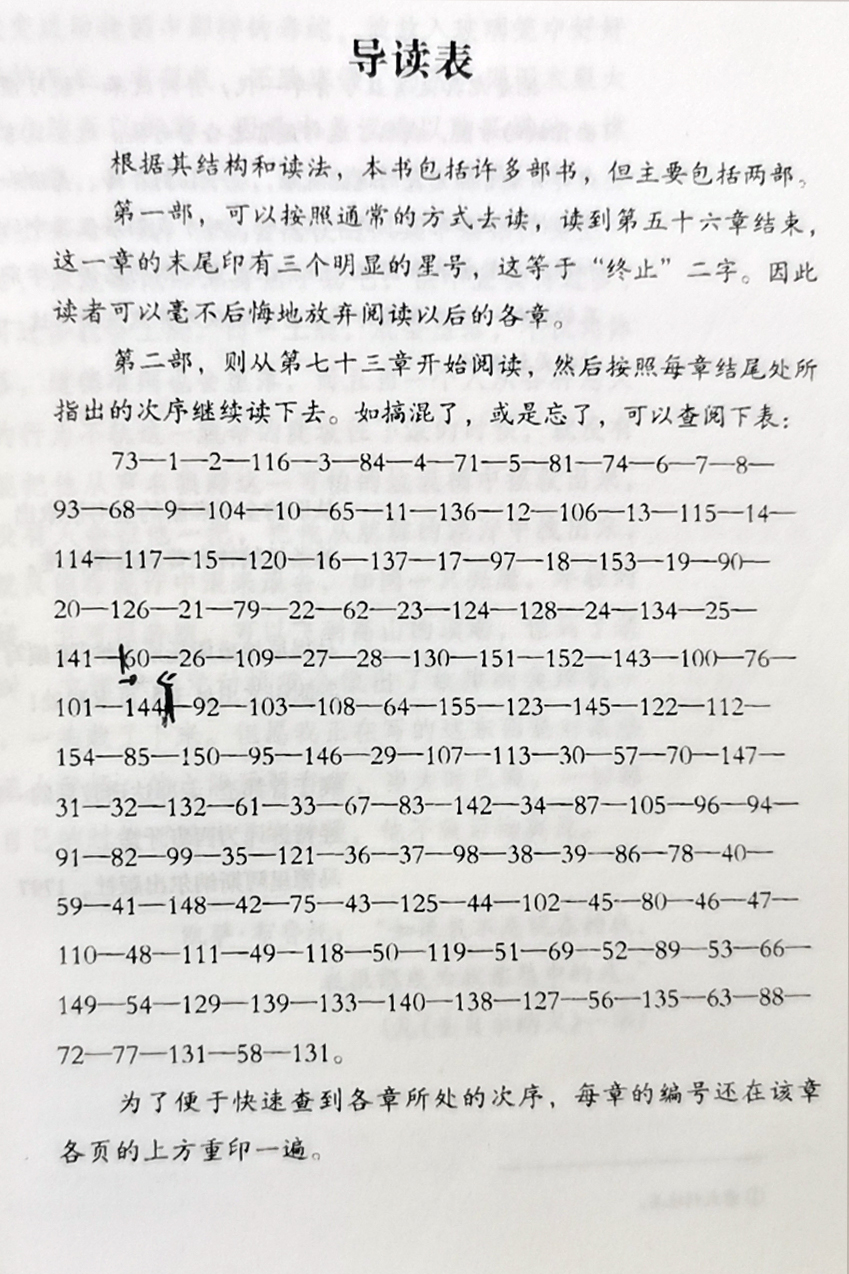 导读表
根据其结构和读法，本书包括许多部书，但主要包括两部。
第一部，可以按照通常的方式去读，读到第五十六章结束，
这一章的末尾印有三个明显的星号，这等于“终止”二字。因此
读者可以毫不后悔地放弃阅读以后的各章。
第二部，则从第七十三章开始阅读，然后按照每章结尾处所
指出的次序继续读下去。如搞混了，或是忘了，可以查阅下表：
73—1—2—116—3—84—4—71—5—81—74—6—7—8—
93—68—9—104—10—65—11—136—12—106—13—115—14—
114—117—15—120—16—137—17—97—18—153—19—90—
20—126—21—79—22—62—23—124—128—24—134—25—
141—60—26—109—27—28—130—151—152—143—100—76—
101—144—92—103—108—64—155—123—145—122—112—
154—85—150—95—146—29—107—113—30—57—70—147—
31—32—132—61—33—67—83—142—34—87—105—96—94—
91—82—99—35—121—36—37—98—38—39—86—78—40—
59—41—148—42—75—43—125—44—102—45—80—46—47—
110—48—111—49—118—50—119—51—69—52—89—53—66—
149—54—129—139—133—140—138—127—56—135—63—88—
72—77—131—58—131。
为了便于快速查到各章所处的次序，每章的编号还在该章
各页的上方重印一遍。